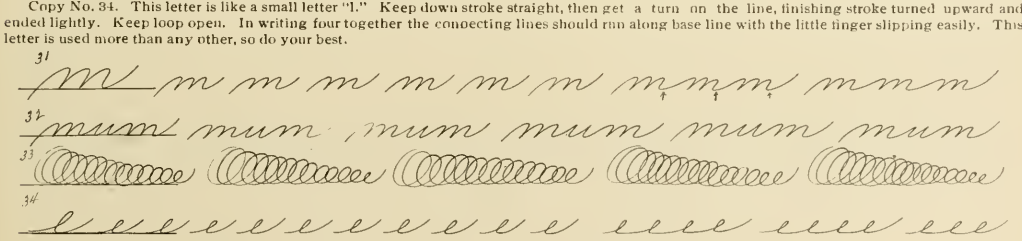 Copy No. 34. This letter is like a small letter "l." Keep down stroke straight, then get a turn on the line, finishing stroke turned upward and
ended lightly. Keep loop open. In writing four together the connecting lines should run along base line with the little finger slipping easily. This
letter is used more than any other, so do your best.
31 m m m m m m m m mmm mmm
32 mum mum mum mum mum mum
33
34 e e e e e e e e e e e e e eeee eeee eee